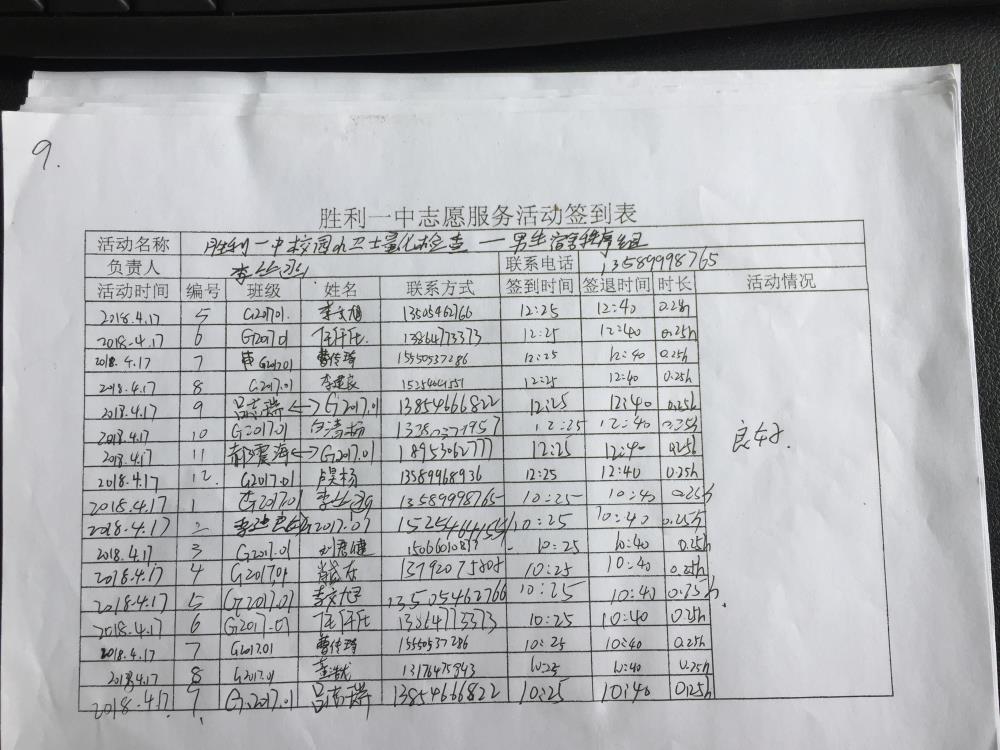 9.
胜利一中志愿服务活动签到表
活动名称 胜利一中校园小卫士量化检查 — 男生宿舍秩序组
负责人 李 联系电话 13589998765
活动时间 编号 班级 姓名 联系方式 签到时间 签退时间 时长 活动情况
2018.4.17 5 G2017.01. 李文旭 13505462766 12:25 12:40 0.25h
2018.4.17 6 G2017.01 任仟氏 13864773373 12:25 12:40 0.25h
2018.4.17 7 G2017.01 曹传琦 15550537286 12:25 12:40 0.25h
2018.4.17 8 G2017.01 李建良 12:25 12:40 0.25h
2018.4.17 9 吕志瑞 ←→ G2017.01 13854666822 12:25 12:40 0.25h
2018.4.17 10 G2017.01 白清杨 12:25 12:40 0.25h
2018.4.17 11 郝震海 ←→ G2017.01 18953062777 12:25 12:40 0.25h
2018.4.17 12. G2017.01 卢昊杨 13589968936 12:25 12:40 0.25h
良好.
2018.4.17 1 G2017.01 李 13589998765 10:25 10:40 0.25h
2018.4.17 2 G2017.01 10:25 10:40 0.25h
2018.4.17 3 G2017.01 刘君健 10:25 10:40 0.25h
2018.4.17 4 G2017.01 13792075808 10:25 10:40 0.25h
2018.4.17 5 G2017.01 李文旭 13505462766 10:25 10:40 0.25h.
2018.4.17 6 G2017.01 任仟氏 13864773373 10:25 10:40 0.25h
2018.4.17 7 G2017.01 曹传琦 15550537286 10:25 10:40 0.25h
2018.4.17 8 G2017.01 13176475943 10:25 10:40 0.25h
2018.4.17. 9 G2017.01 吕志瑞 13854666822 10:25 10:40 0.25h